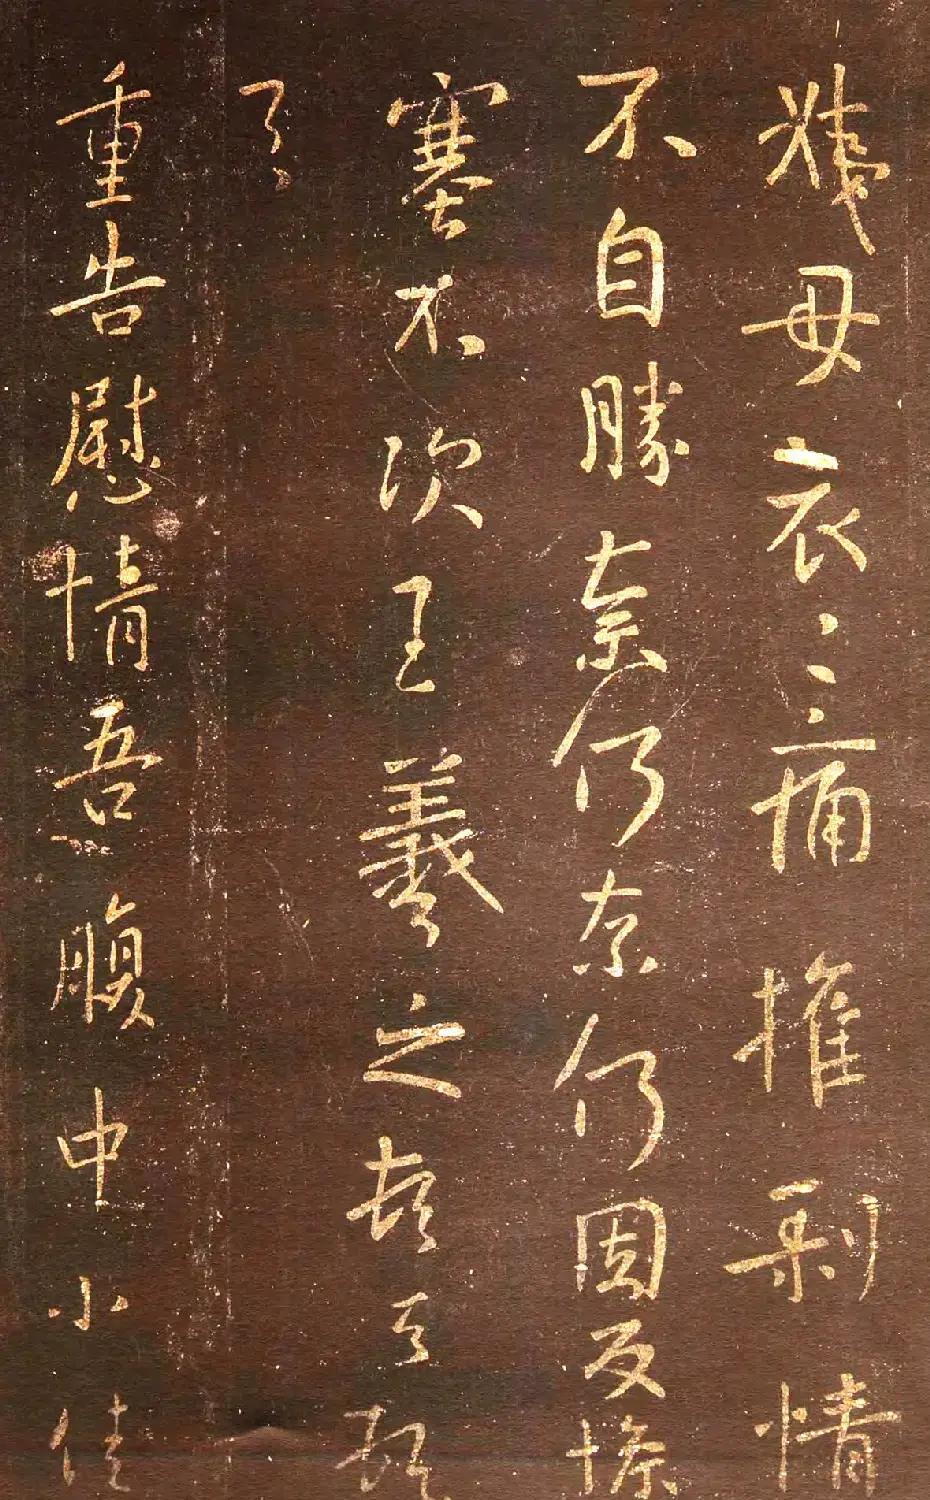 姨母哀〻痛摧剥情
不自勝奈何奈何因反慘
塞不次王羲之頓首頓
首
重告慰情吾腹中小佳